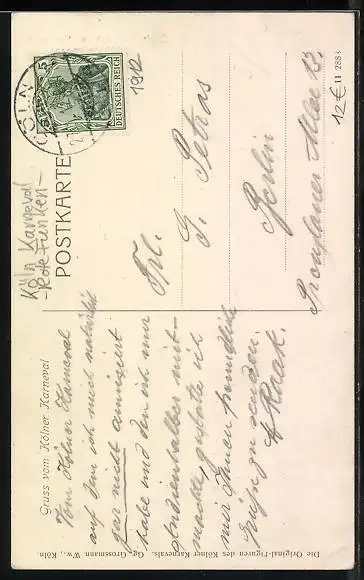 Gruss vom Kölner Karneval
Vom Kölner Karneval
auf dem ich mich natürlich
gar nicht amüsiert
habe und den ich nur
studienhalber mit-
machte, gestatte ich
mir Ihnen freundliche
Grüße zu senden.
Raak.
Köln Karneval
-Rote Funken-
POSTKARTE
CÖLN
DEUTSCHES REICH
1912
Frl.
G. Petras
Berlin
Prenzlauer Allee 13.
12€ 11 2883
Die Original-Figuren des Kölner Karnevals. Gg. Grossmann Ww., Köln.